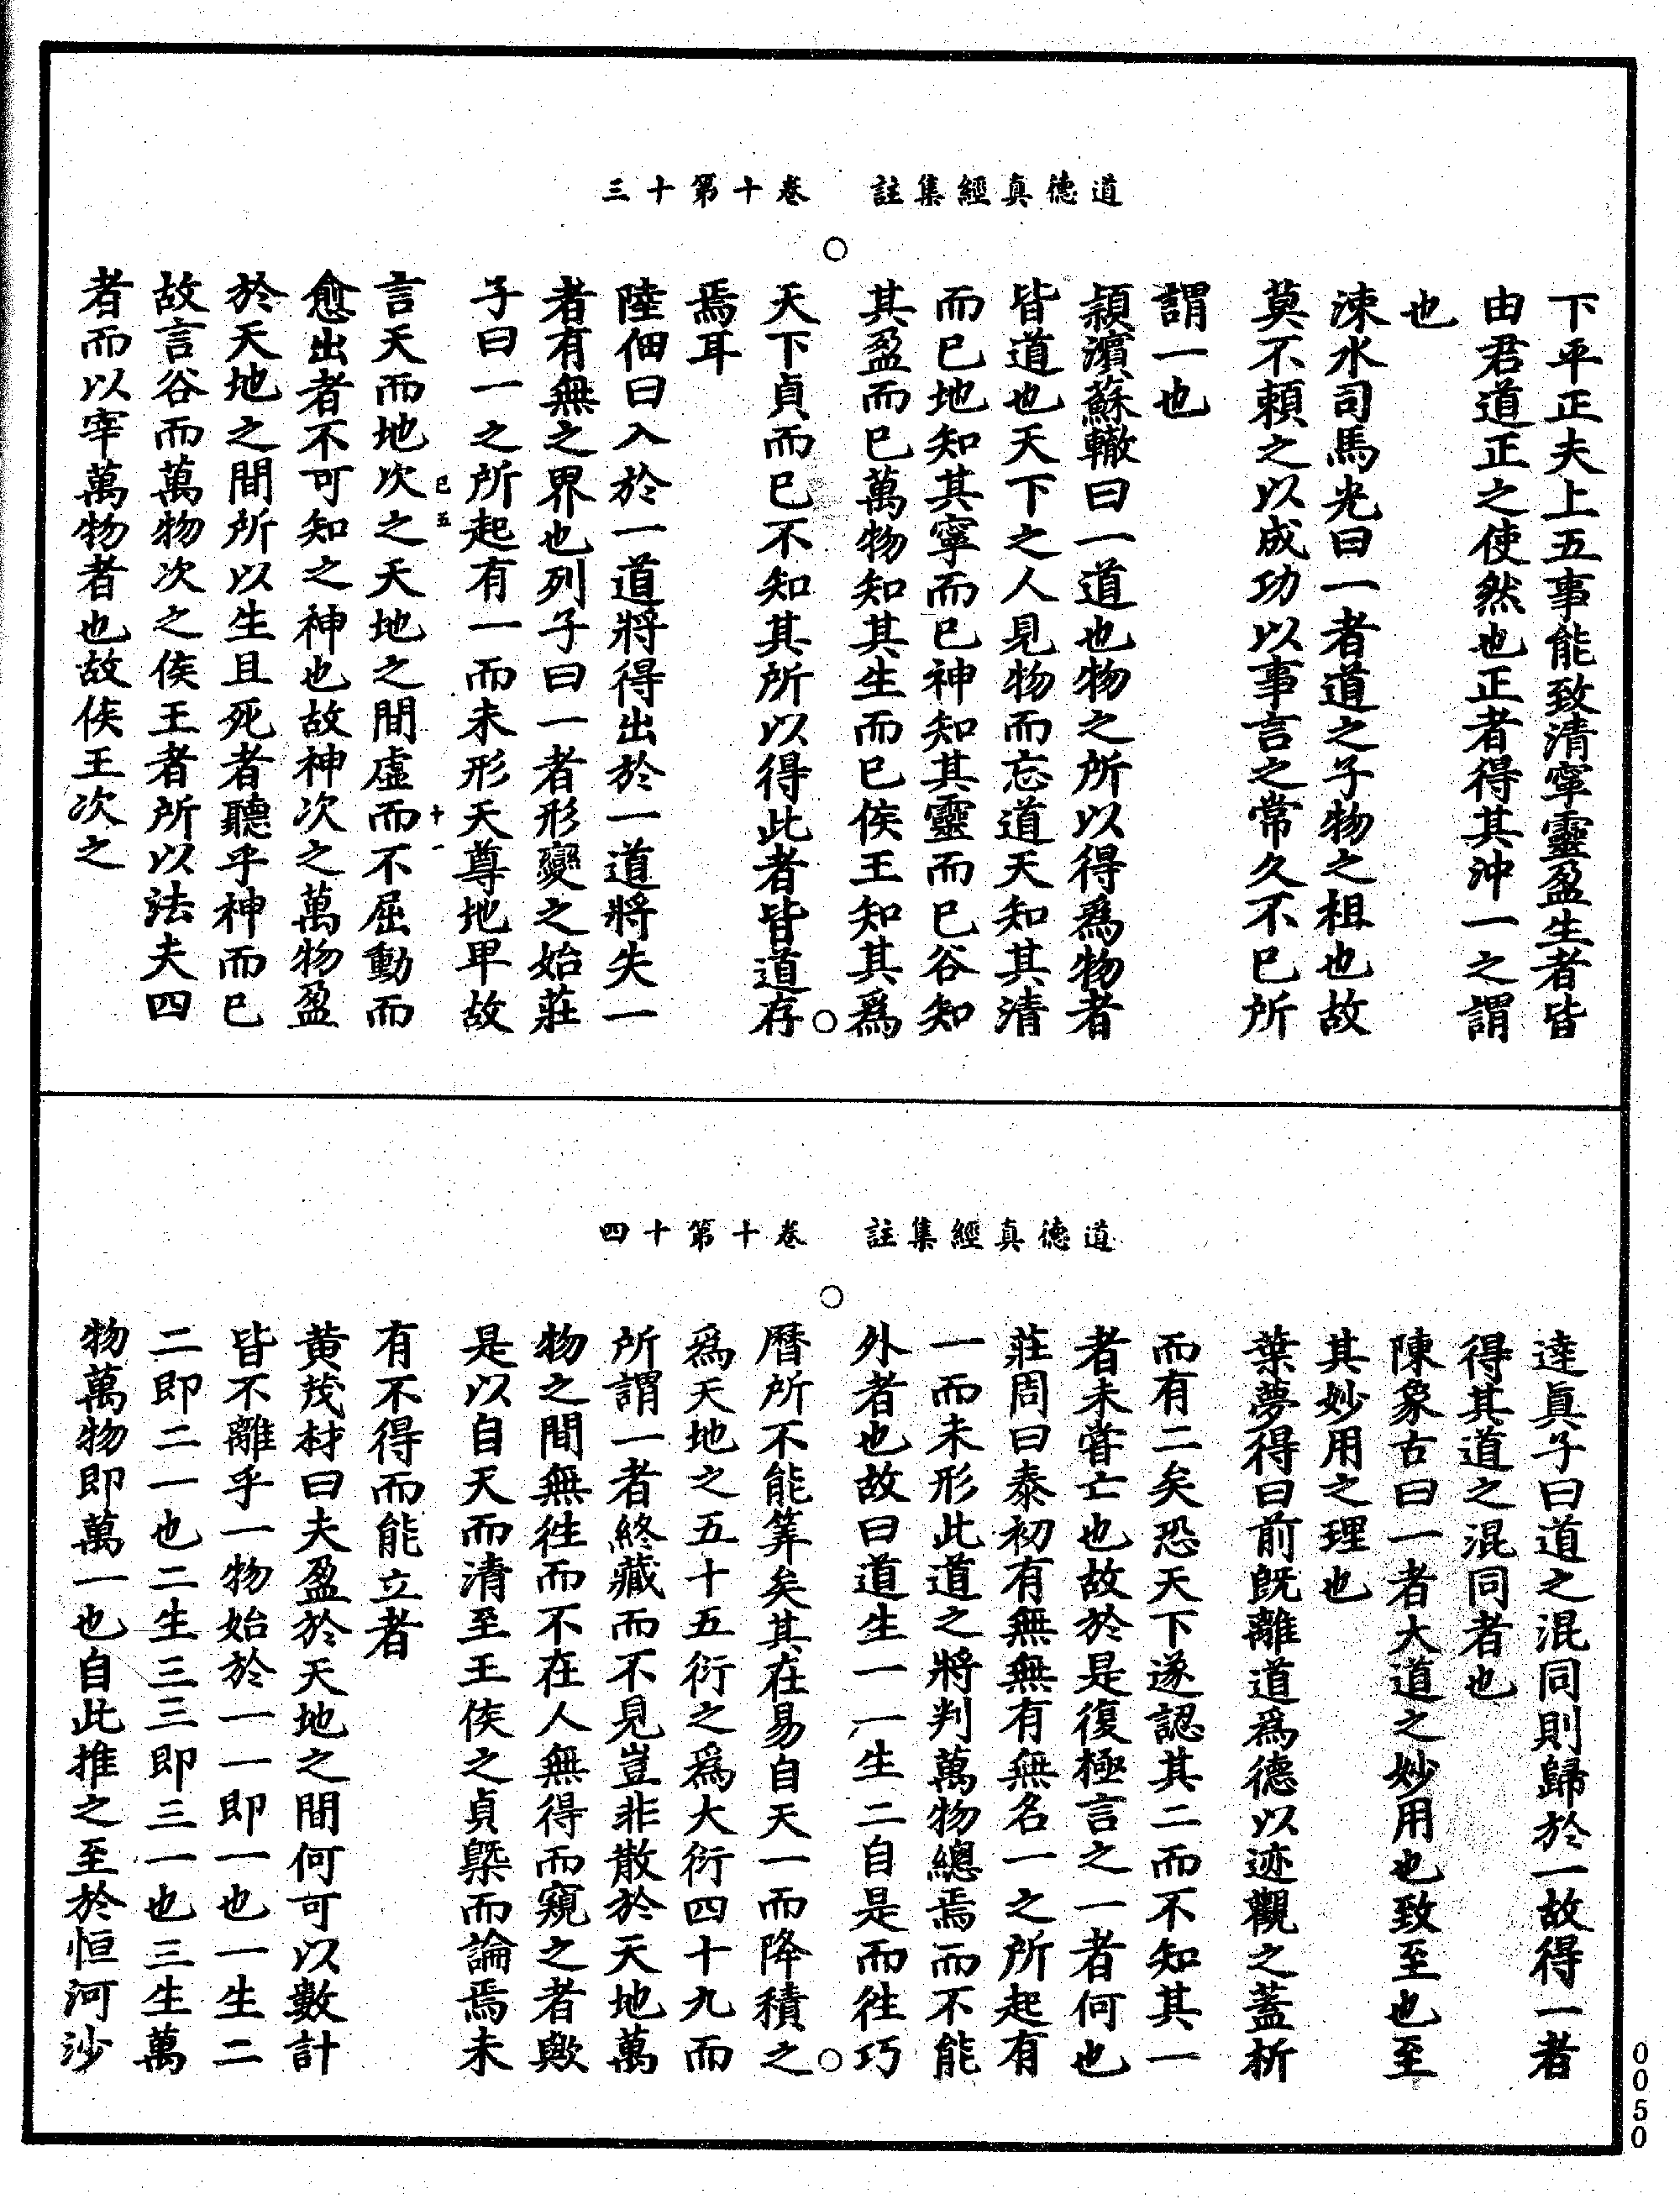 道德真經集註　卷十第十三
下平正夫上五事能致清寧靈盈生者皆
由君道正之使然也正者得其沖一之謂
也
涑水司馬光曰一者道之子物之祖也故
莫不頼之以成功以事言之常久不已所
謂一也
頴濵蘇轍曰一道也物之所以得爲物者
皆道也天下之人見物而忘道天知其清
而已地知其寧而已神知其靈而已谷知
其盈而已萬物知其生而已侯王知其爲
天下貞而已不知其所以得此者皆道存
焉耳
陸佃曰入於一道將得出於一道將失一
者有無之界也列子曰一者形變之始莊
子曰一之所起有一而未形天尊地卑故
已五　十一
言天而地次之天地之間虛而不屈動而
愈出者不可知之神也故神次之萬物盈
於天地之間所以生且死者聽乎神而已
故言谷而萬物次之侯王者所以法夫四
者而以宰萬物者也故侯王次之
道德真經集註　卷十第十四
達真子曰道之混同則歸於一故得一者
得其道之混同者也
陳象古曰一者大道之妙用也致至也至
其妙用之理也
葉夢得曰前旣離道爲德以迹觀之蓋析
而有二矣恐天下遂認其二而不知其一
者未甞亡也故於是復極言之一者何也
莊周曰泰初有無無有無名一之所起有
一而未形此道之將判萬物總焉而不能
外者也故曰道生一一生二自是而往巧
曆所不能筭矣其在易自天一而降積之
爲天地之五十五衍之爲大衍四十九而
所謂一者終藏而不見豈非散於天地萬
物之間無往而不在人無得而窺之者歟
是以自天而清至王侯之貞槩而論焉未
有不得而能立者
黄茂材曰夫盈於天地之間何可以數計
皆不離乎一物始於一一即一也一生二
二即二一也二生三三即三一也三生萬
物萬物即萬一也自此推之至於恒河沙
0050